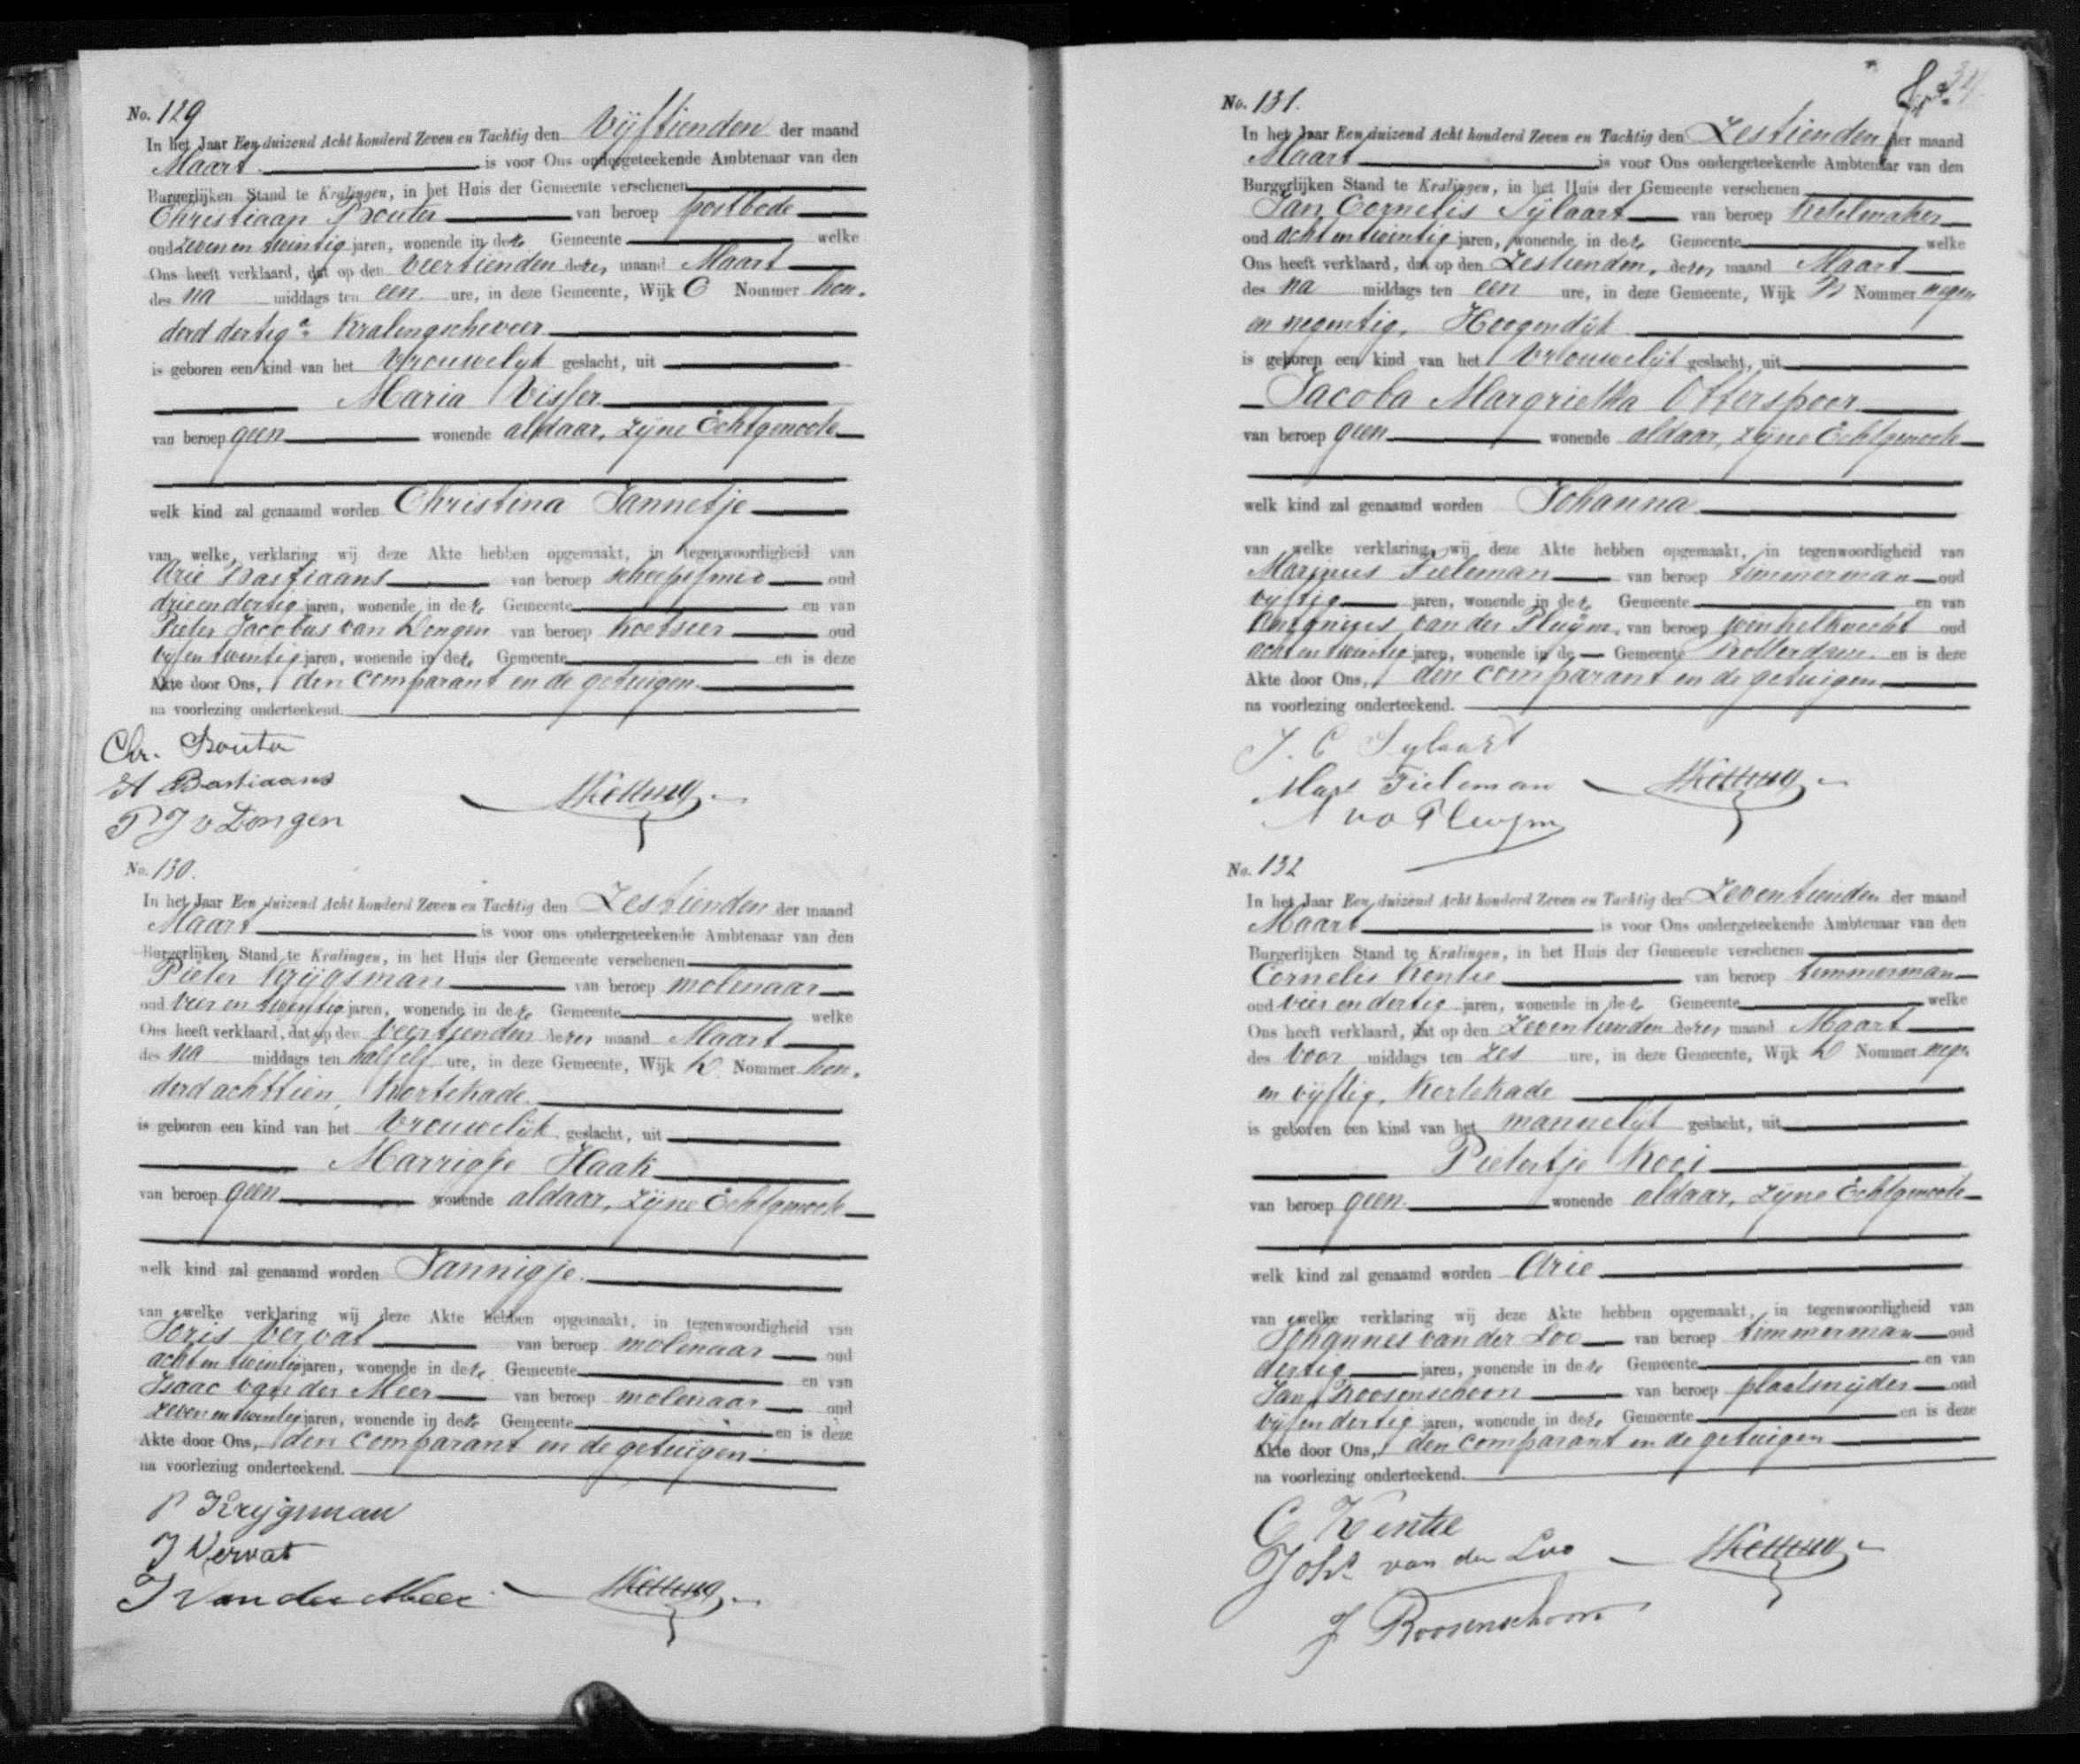 No. 129
In het Jaar Een duizend Acht honderd Zeven en Tachtig den Vijftienden der maand
Maart is voor Ons ondergeteekende Ambtenaar van den
Burgerlijken Stand te Kralingen, in het Huis der Gemeente verschenen
Christiaan Bouter van beroep postbode
oud zeven en twintig jaren, wonende in deze Gemeente welke
Ons heeft verklaard, dat op den veertienden dezer maand Maart
des na middags ten een ure, in deze Gemeente, Wijk C Nommer hon-
derd dertig a Kralingscheveer
is geboren een kind van het Vrouwelijk geslacht, uit
Maria Visser
van beroep geen wonende aldaar, zijne Echtgenoote
welk kind zal genaamd worden Christina Jannetje
van welke verklaring wij deze Akte hebben opgemaakt, in tegenwoordigheid van
Arie Bastiaans van beroep scheepssmid oud
drie en dertig jaren, wonende in deze Gemeente en van
Pieter Jacobus van Dongen van beroep koetsier oud
vijf en twintig jaren, wonende in deze Gemeente en is deze
Akte door Ons, den comparant en de getuigen
na voorlezing onderteekend.
Chr. Bouter
A Bastiaans
P J v Dongen
No. 130.
In het Jaar Een duizend Acht honderd Zeven en Tachtig den Zestienden der maand
Maart is voor ons ondergeteekende Ambtenaar van den
Burgerlijken Stand te Kralingen, in het Huis der Gemeente verschenen
Pieter Krijgsman van beroep molenaar
oud vier en twintig jaren, wonende in deze Gemeente welke
Ons heeft verklaard, dat op den veertienden dezer maand Maart
des na middags ten half elf ure, in deze Gemeente, Wijk D Nommer hon-
derd achttien, Kortekade.
is geboren een kind van het Vrouwelijk geslacht, uit
Marrigje Haak
van beroep geen wonende aldaar, zijne Echtgenoote
welk kind zal genaamd worden Jannigje.
van welke verklaring wij deze Akte hebben opgemaakt, in tegenwoordigheid van
Joris Vervat van beroep molenaar oud
acht en twintig jaren, wonende in deze Gemeente en van
Isaac van der Meer van beroep molenaar oud
zeven en twintig jaren, wonende in deze Gemeente en is deze
Akte door Ons, den comparant en de getuigen
na voorlezing onderteekend.
P Krijgsman
J Vervat
I Van der Meer
No. 131.
In het Jaar Een duizend Acht honderd Zeven en Tachtig den Zestienden der maand
Maart is voor Ons ondergeteekende Ambtenaar van den
Burgerlijken Stand te Kralingen, in het Huis der Gemeente verschenen
Jan Cornelis Sijlaart van beroep ketelmaker
oud acht en twintig jaren, wonende in deze Gemeente welke
Ons heeft verklaard, dat op den Zestienden, dezer maand Maart
des na middags ten een ure, in deze Gemeente, Wijk B Nommer negen
en negentig, Hoogendijk
is geboren een kind van het Vrouwelijk geslacht, uit
Jacoba Margrietha Otterspoor
van beroep geen wonende aldaar, zijne Echtgenoote
welk kind zal genaamd worden Johanna
van welke verklaring wij deze Akte hebben opgemaakt, in tegenwoordigheid van
Marinus Tieleman van beroep timmerman oud
vijftig jaren, wonende in deze Gemeente en van
Antonius van der Pluijm, van beroep winkelknecht oud
acht en twintig jaren, wonende in de Gemeente Rotterdam en is deze
Akte door Ons, den comparant en de getuigen
na voorlezing onderteekend.
J. C Sylaart
Mars Tieleman
A v d Pluijm
No. 132
In het Jaar Een duizend Acht honderd Zeven en Tachtig den Zeventienden der maand
Maart is voor Ons ondergeteekende Ambtenaar van den
Burgerlijken Stand te Kralingen, in het Huis der Gemeente verschenen
Cornelis Kentie van beroep timmerman
oud vier en dertig jaren, wonende in deze Gemeente welke
Ons heeft verklaard, dat op den Zeventienden dezer maand Maart
des voor middags ten zes ure, in deze Gemeente, Wijk D Nommer negen
en vijftig, Kortekade
is geboren een kind van het mannelijk geslacht, uit
Pietertje Kooi
van beroep geen wonende aldaar, zijne Echtgenoote
welk kind zal genaamd worden Arie
van welke verklaring wij deze Akte hebben opgemaakt, in tegenwoordigheid van
Johannes van der Loo van beroep timmerman oud
dertig jaren, wonende in deze Gemeente en van
Jan Roosenschoon van beroep plaatsnijder oud
vijf en dertig jaren, wonende in deze Gemeente en is deze
Akte door Ons, den comparant en de getuigen
na voorlezing onderteekend.
C Kentie
Johs van der Loo
J Roosenschoon